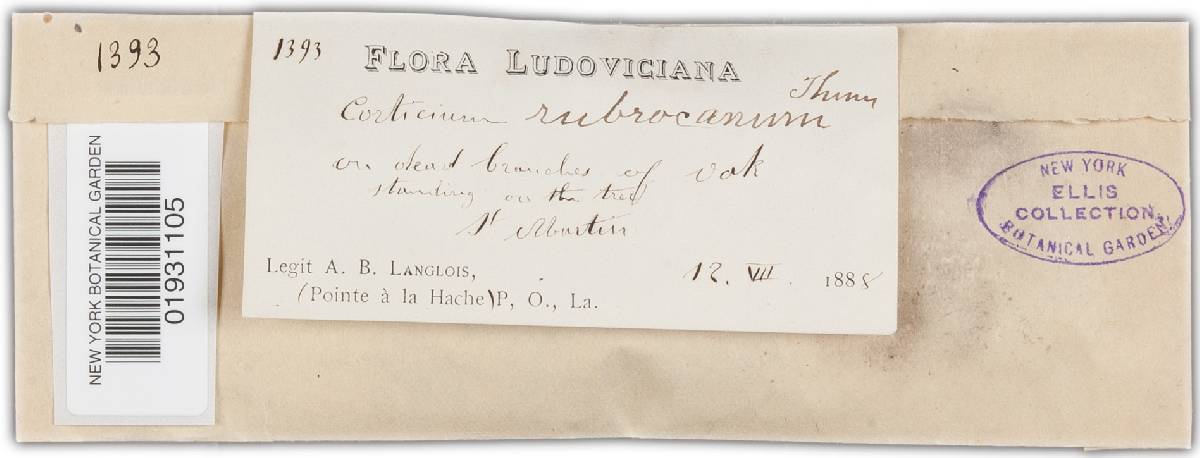 1393
1393
FLORA LUDOVICIANA
Corticium rubrocanum Thüm
on dead branches of oak
standing on the tree
St Martin
Legit A. B. LANGLOIS,
12. VIII. 1888
(Pointe à la Hache) P, O., La.
NEW YORK BOTANICAL GARDEN
01931105
NEW YORK
ELLIS
COLLECTION
BOTANICAL GARDEN